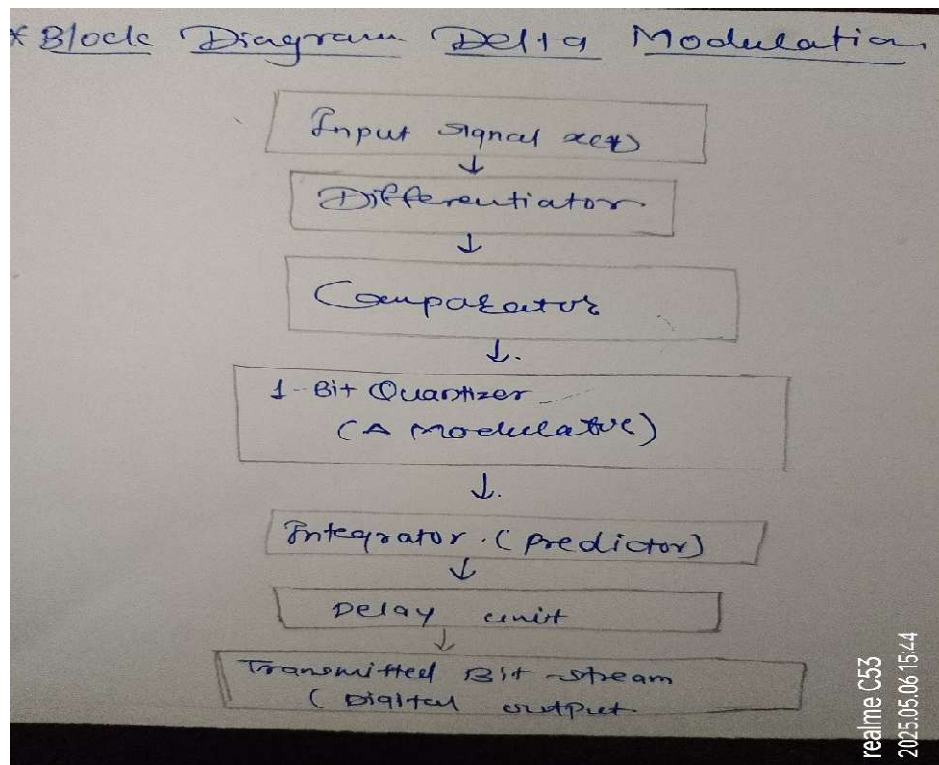 * Block Diagram Delta Modulation
Input signal x(t)
↓
Differentiator
↓
Comparator
↓.
1-Bit Quantizer
(Δ Modulator)
↓.
Integrator. (Predictor)
↓
Delay unit
↓
Transmitted Bit stream
(Digital output.
realme C53
2025.05.06 15:44